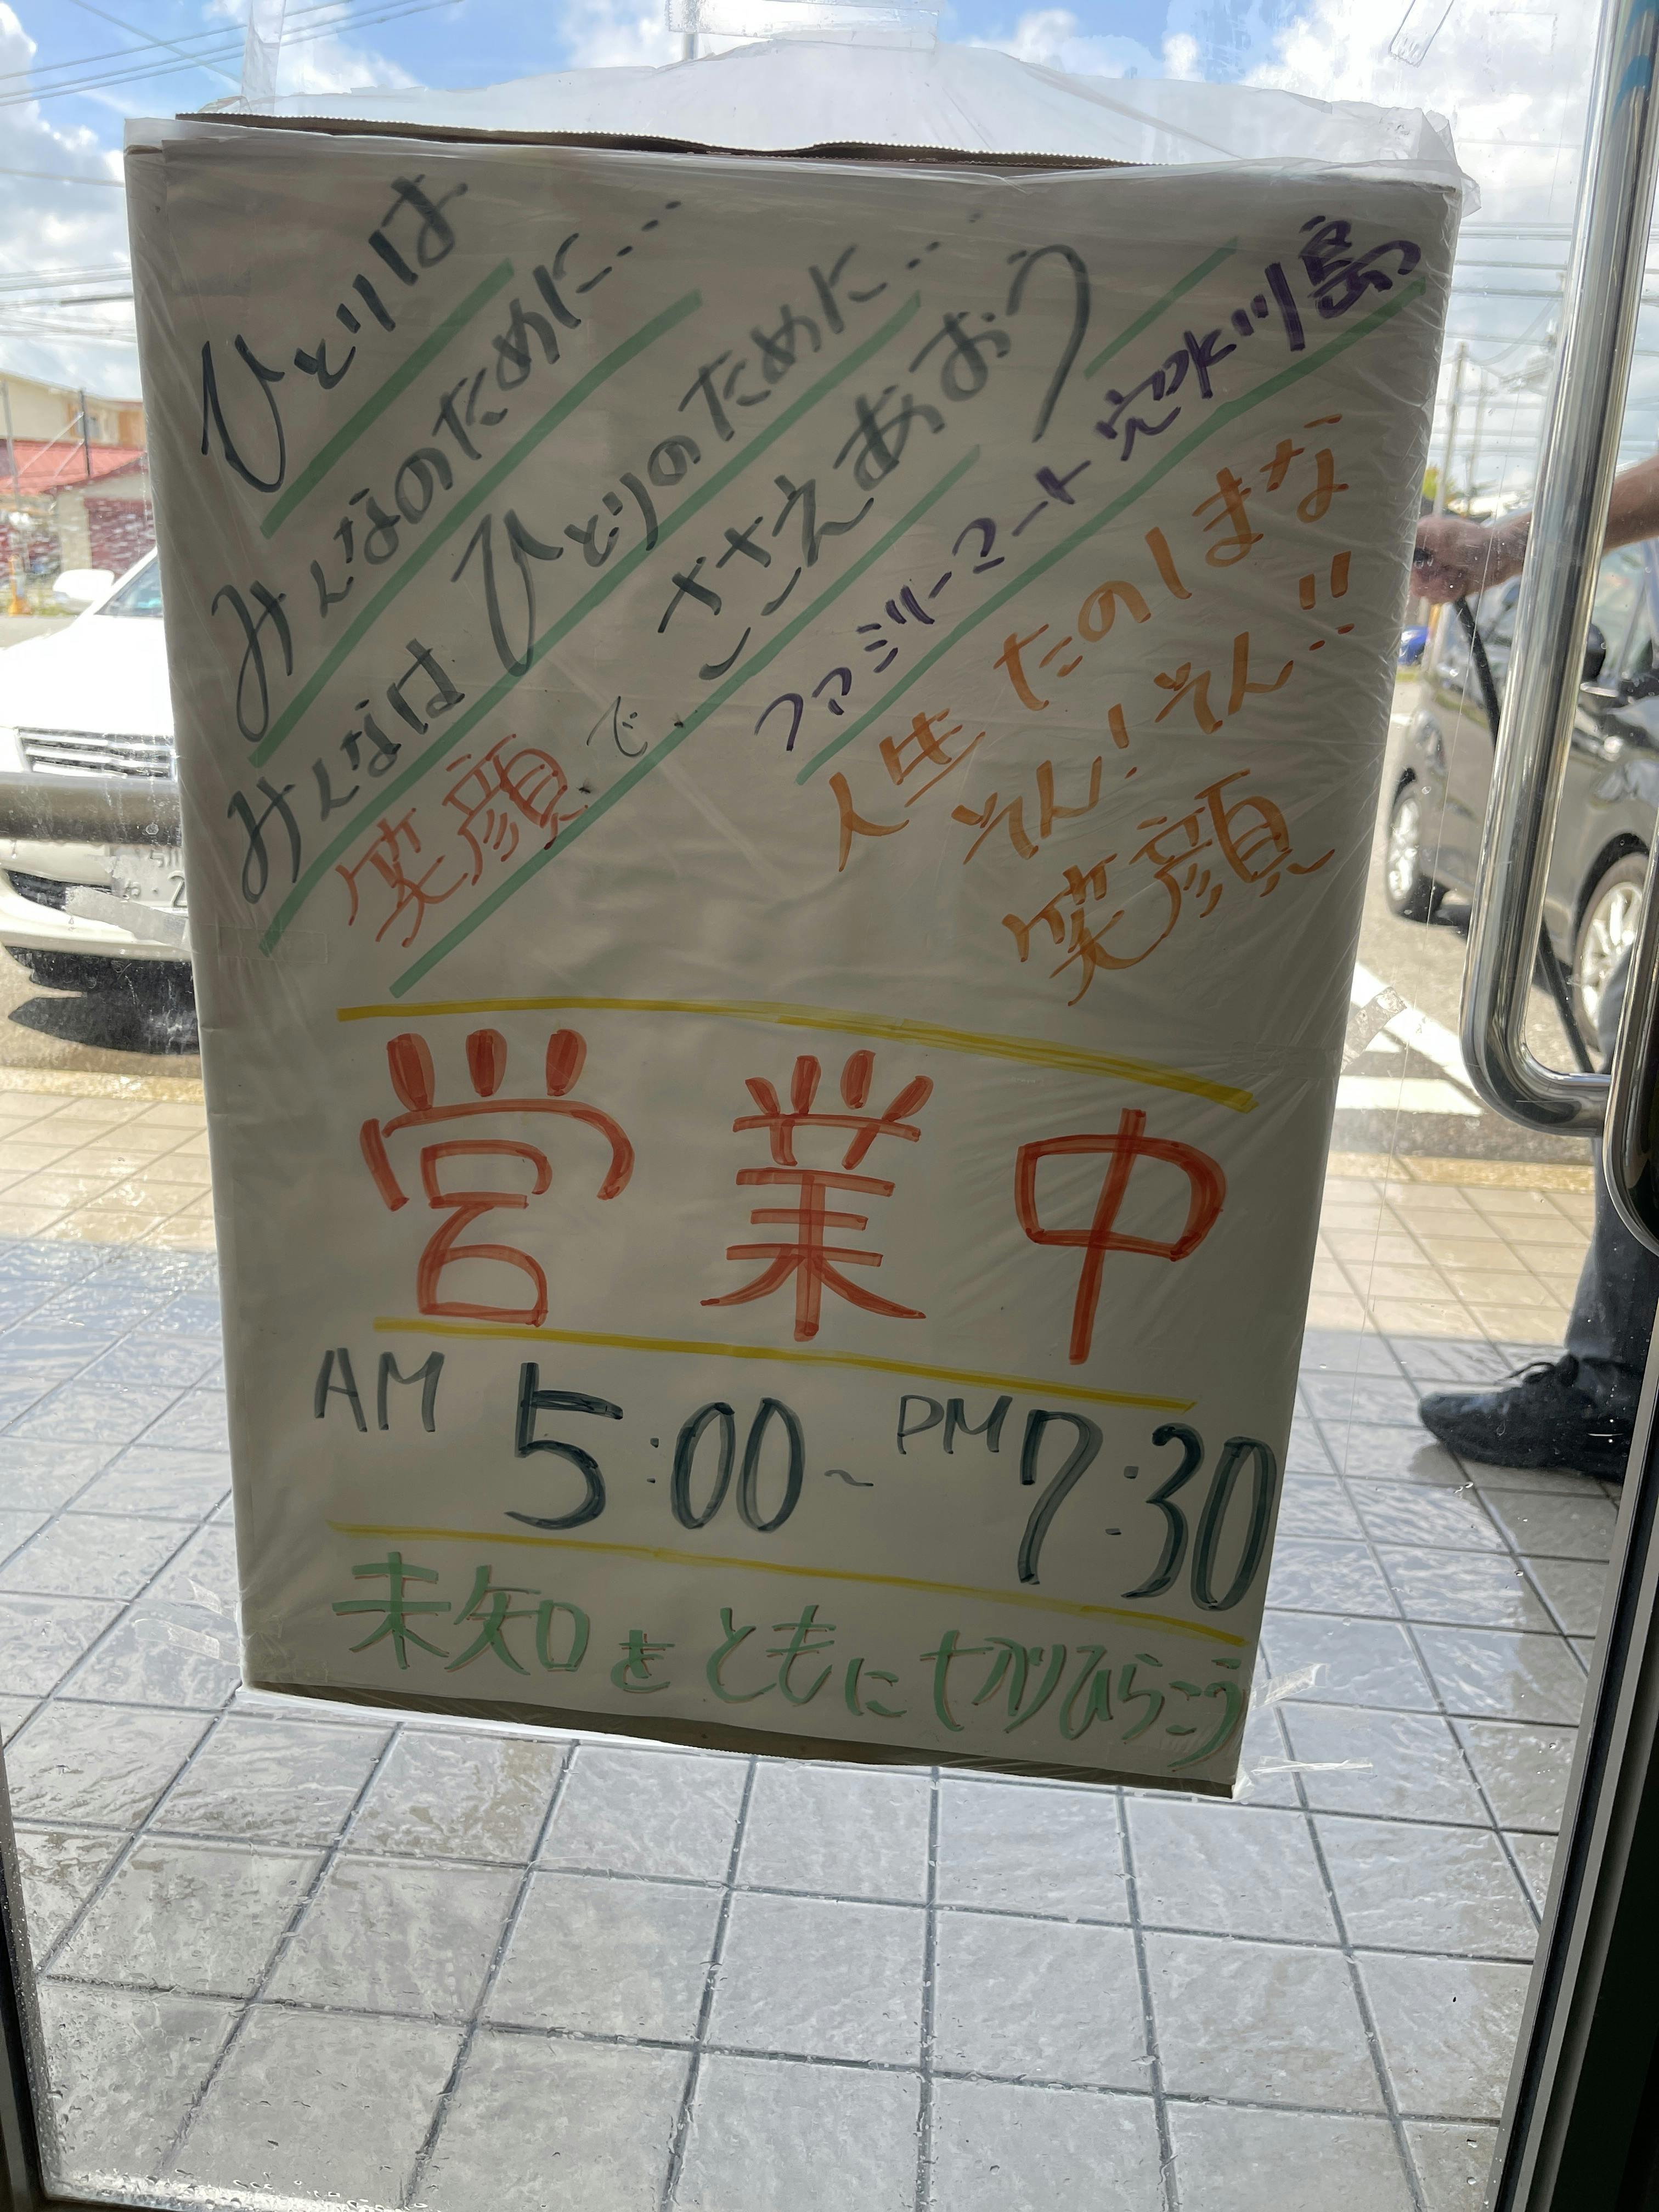 ひとりは
みんなのために…
みんなは ひとりのために…
笑顔で、ささえあおう
ファミリーマート 穴水川島
人生 たのしまな
そん! そん!!
笑顔
営業中
AM 5:00~PM 7:30
未知をともに切りひらこう